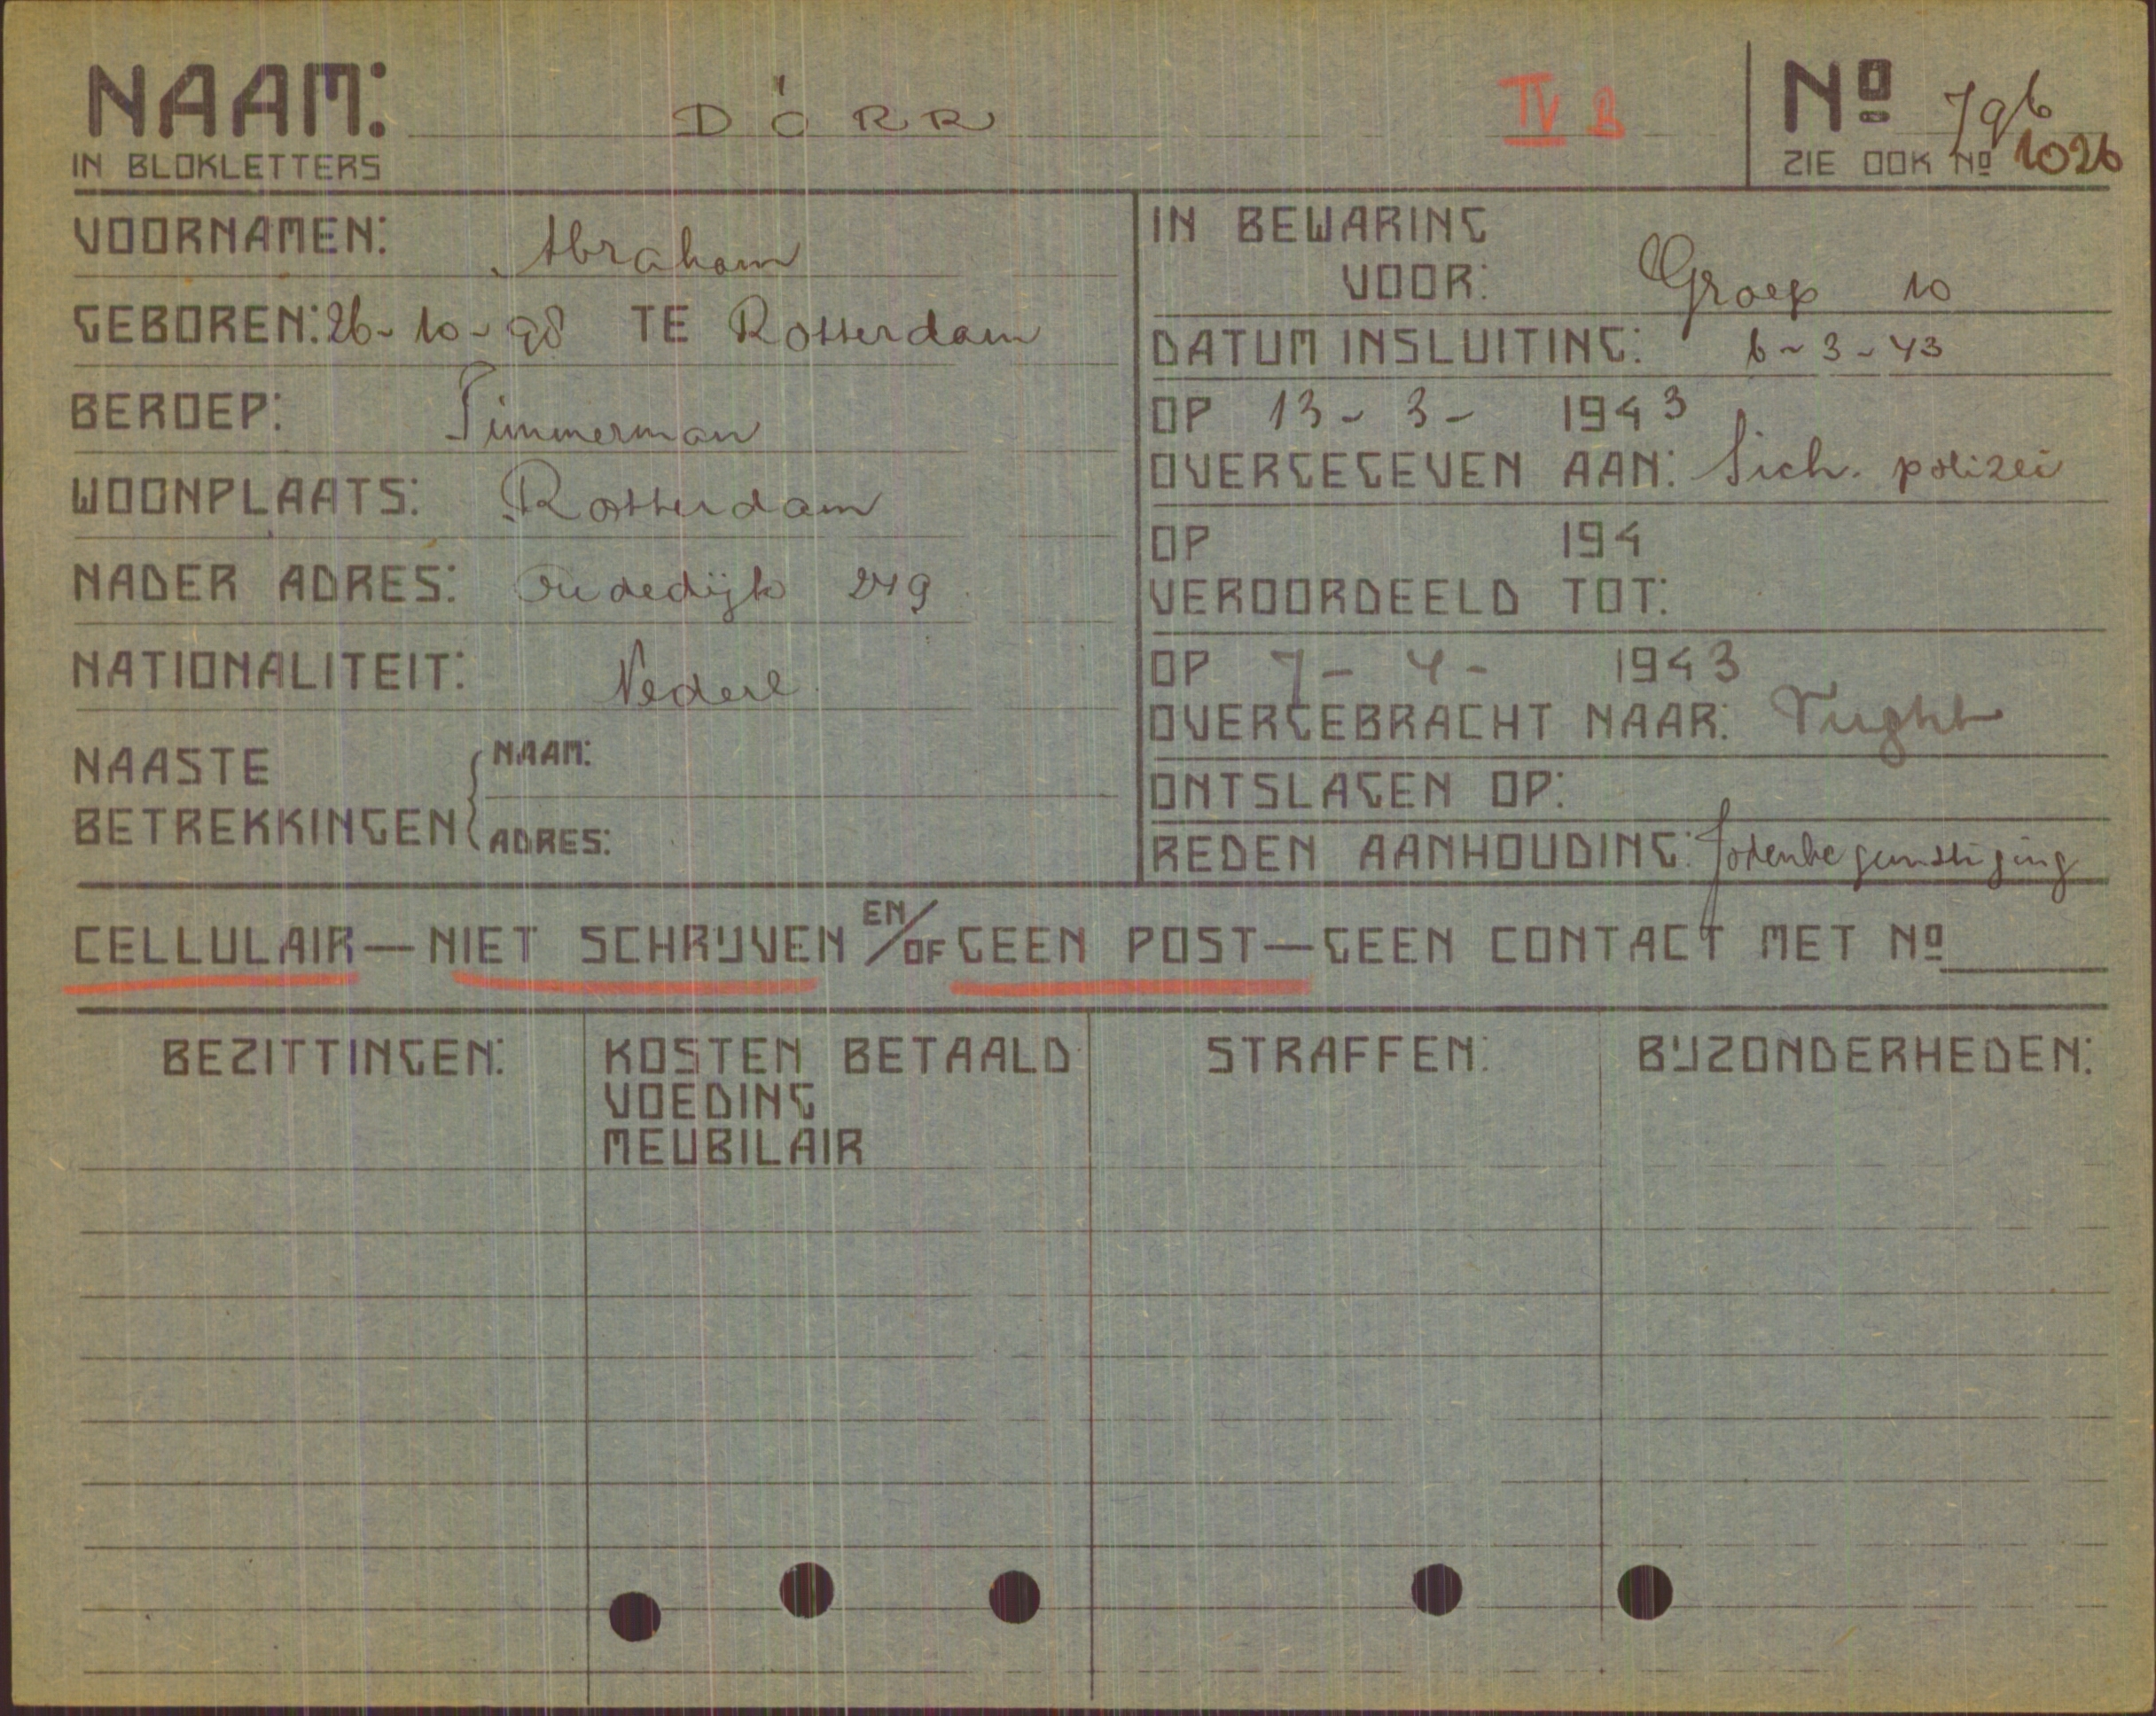 NAAM: DÖRR IV B Nº 796
IN BLOKLETTERS ZIE OOK Nº 1026
VOORNAMEN: Abraham
GEBOREN: 26-10-98 TE Rotterdam
BEROEP: Timmerman
WOONPLAATS: Rotterdam
NADER ADRES: Oudedijk 249
NATIONALITEIT: Nederl
NAASTE BETREKKINGEN
NAAM:
ADRES:
IN BEWARING
VOOR: Groep 10
DATUM INSLUITING: 6-3-43
OP 13-3- 1943
OVERGEGEVEN AAN: Sich. polizei
OP 194
VEROORDEELD TOT:
OP 7-4- 1943
OVERGEBRACHT NAAR: Vught
ONTSLAGEN OP:
REDEN AANHOUDING: Jodenbegunstiging
CELLULAIR — NIET SCHRIJVEN EN/OF GEEN POST — GEEN CONTACT MET Nº
BEZITTINGEN: KOSTEN BETAALD STRAFFEN: BIJZONDERHEDEN:
VOEDING
MEUBILAIR